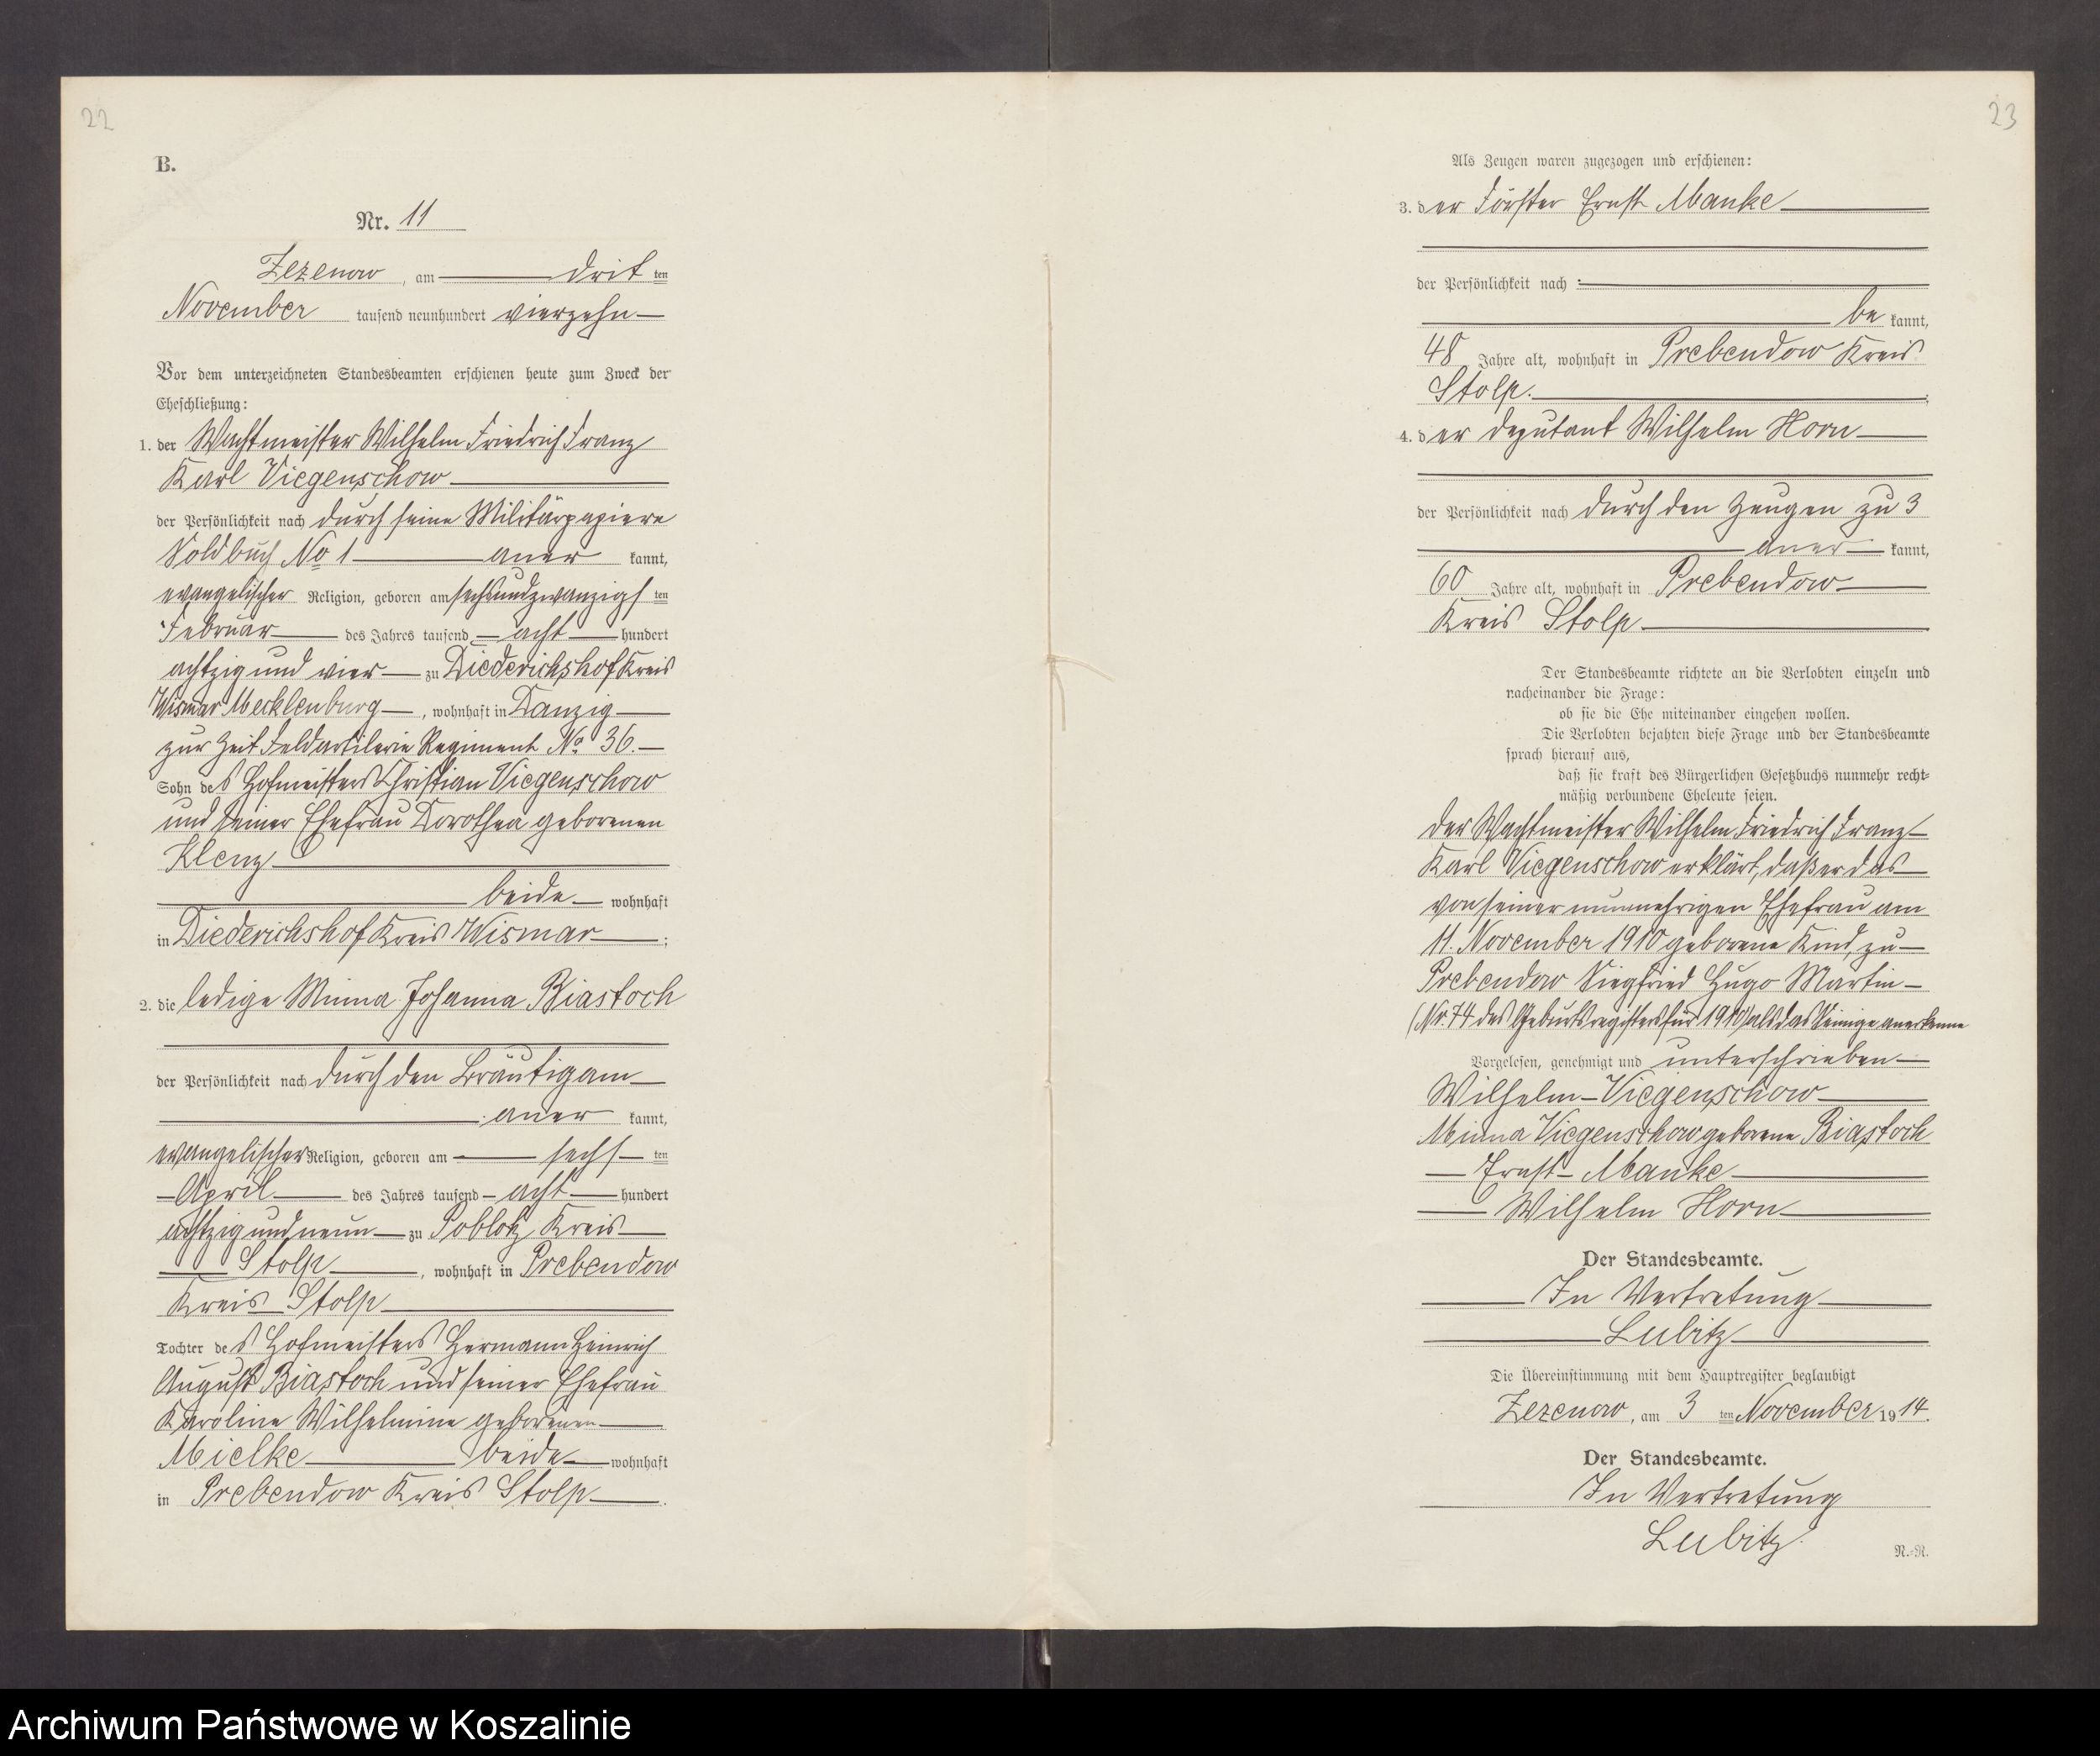 22
B.
Nr. 11
Zezenow, am drit ten
November tausend neunhundert vierzehn
Vor dem unterzeichneten Standesbeamten erschienen heute zum Zweck der
Eheschließung:
1. der Wachtmeister Wilhelm Friedrich Franz
Karl Viegenschow
der Persönlichkeit nach durch seine Militärpapiere
Soldbuch No 1 aner kannt,
evangelischer Religion, geboren am sechsundzwanzigs ten
Februar des Jahres tausend acht hundert
achtzig und vier zu Diederichshof Kreis
Wismar Mecklenburg, wohnhaft in Danzig
zur Zeit Feldartilerie Regiment No 36.
Sohn des Hofmeisters Christian Viegenschow
und seiner Ehefrau Dorothea geborenen
Klenz
beide wohnhaft
in Diederichshof Kreis Wismar;
2. die ledige Minna Johanna Biastoch
der Persönlichkeit nach durch den Bräutigam
aner kannt,
evangelischer Religion, geboren am sechs ten
April des Jahres tausend acht hundert
achtzig und neun zu Poblotz Kreis
Stolp, wohnhaft in Prebendow
Kreis Stolp
Tochter des Hofmeisters Hermann Heinrich
August Biastoch und seiner Ehefrau
Karoline Wilhelmine geborenen
Mielke beide wohnhaft
in Prebendow Kreis Stolp.
23
Als Zeugen waren zugezogen und erschienen:
3. der Förster Ernst Manke
der Persönlichkeit nach
be kannt,
48 Jahre alt, wohnhaft in Prebendow Kreis
Stolp.;
4. der Deputant Wilhelm Horn
der Persönlichkeit nach durch den Zeugen zu 3
aner kannt,
60 Jahre alt, wohnhaft in Prebendow
Kreis Stolp
Der Standesbeamte richtete an die Verlobten einzeln und
nacheinander die Frage:
ob sie die Ehe miteinander eingehen wollen.
Die Verlobten bejahten diese Frage und der Standesbeamte
sprach hierauf aus,
daß sie kraft des Bürgerlichen Gesetzbuchs nunmehr recht-
mäßig verbundene Eheleute seien.
Der Wachtmeister Wilhelm Friedrich Franz
Karl Viegenschow erklärt, daß er das
von seiner nunmehrigen Ehefrau am
11. November 1910 geborene Kind, zu
Prebendow Siegfried Hugo Martin
(Nr. 74 des Geburtsregisters für 1910) als das Seinige anerkenne
Vorgelesen, genehmigt und unterschrieben
Wilhelm Viegenschow
Minna Viegenschow geborene Biastoch
Ernst Manke
Wilhelm Horn
Der Standesbeamte.
In Vertretung
Lubitz
Die Übereinstimmung mit dem Hauptregister beglaubigt
Zezenow, am 3 ten November 1914.
Der Standesbeamte.
In Vertretung
Lubitz.
R.-R.
Archiwum Państwowe w Koszalinie